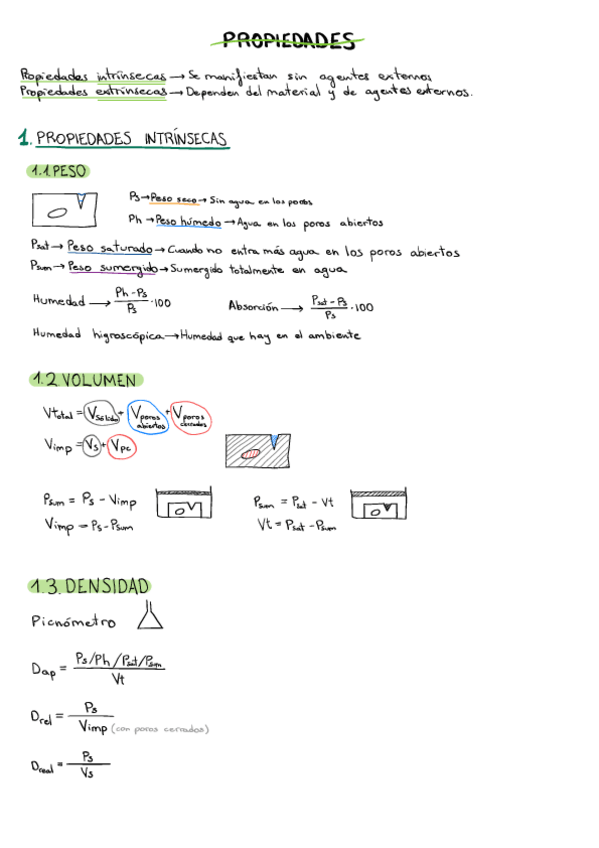 PROPIEDADES
Propiedades intrínsecas → Se manifiestan sin agentes externos
Propiedades extrínsecas → Dependen del material y de agentes externos.
1. PROPIEDADES INTRÍNSECAS
1.1 PESO
Ps → Peso seco → Sin agua en los poros
Ph → Peso húmedo → Agua en los poros abiertos
Psat → Peso saturado → Cuando no entra más agua en los poros abiertos
Psum → Peso sumergido → Sumergido totalmente en agua
Humedad → Ph - Ps / Ps · 100
Absorción → Psat - Ps / Ps · 100
Humedad higroscópica → Humedad que hay en el ambiente
1.2 VOLUMEN
Vtotal = Vsólido + Vporos abiertos + Vporos cerrados
Vimp = Vs + Vpc
Psum = Ps - Vimp
Vimp = Ps - Psum
Psum = Psat - Vt
Vt = Psat - Psum
1.3. DENSIDAD
Picnómetro
Dap = Ps/Ph/Psat/Psum / Vt
Drel = Ps / Vimp (con poros cerrados)
Dreal = Ps / Vs